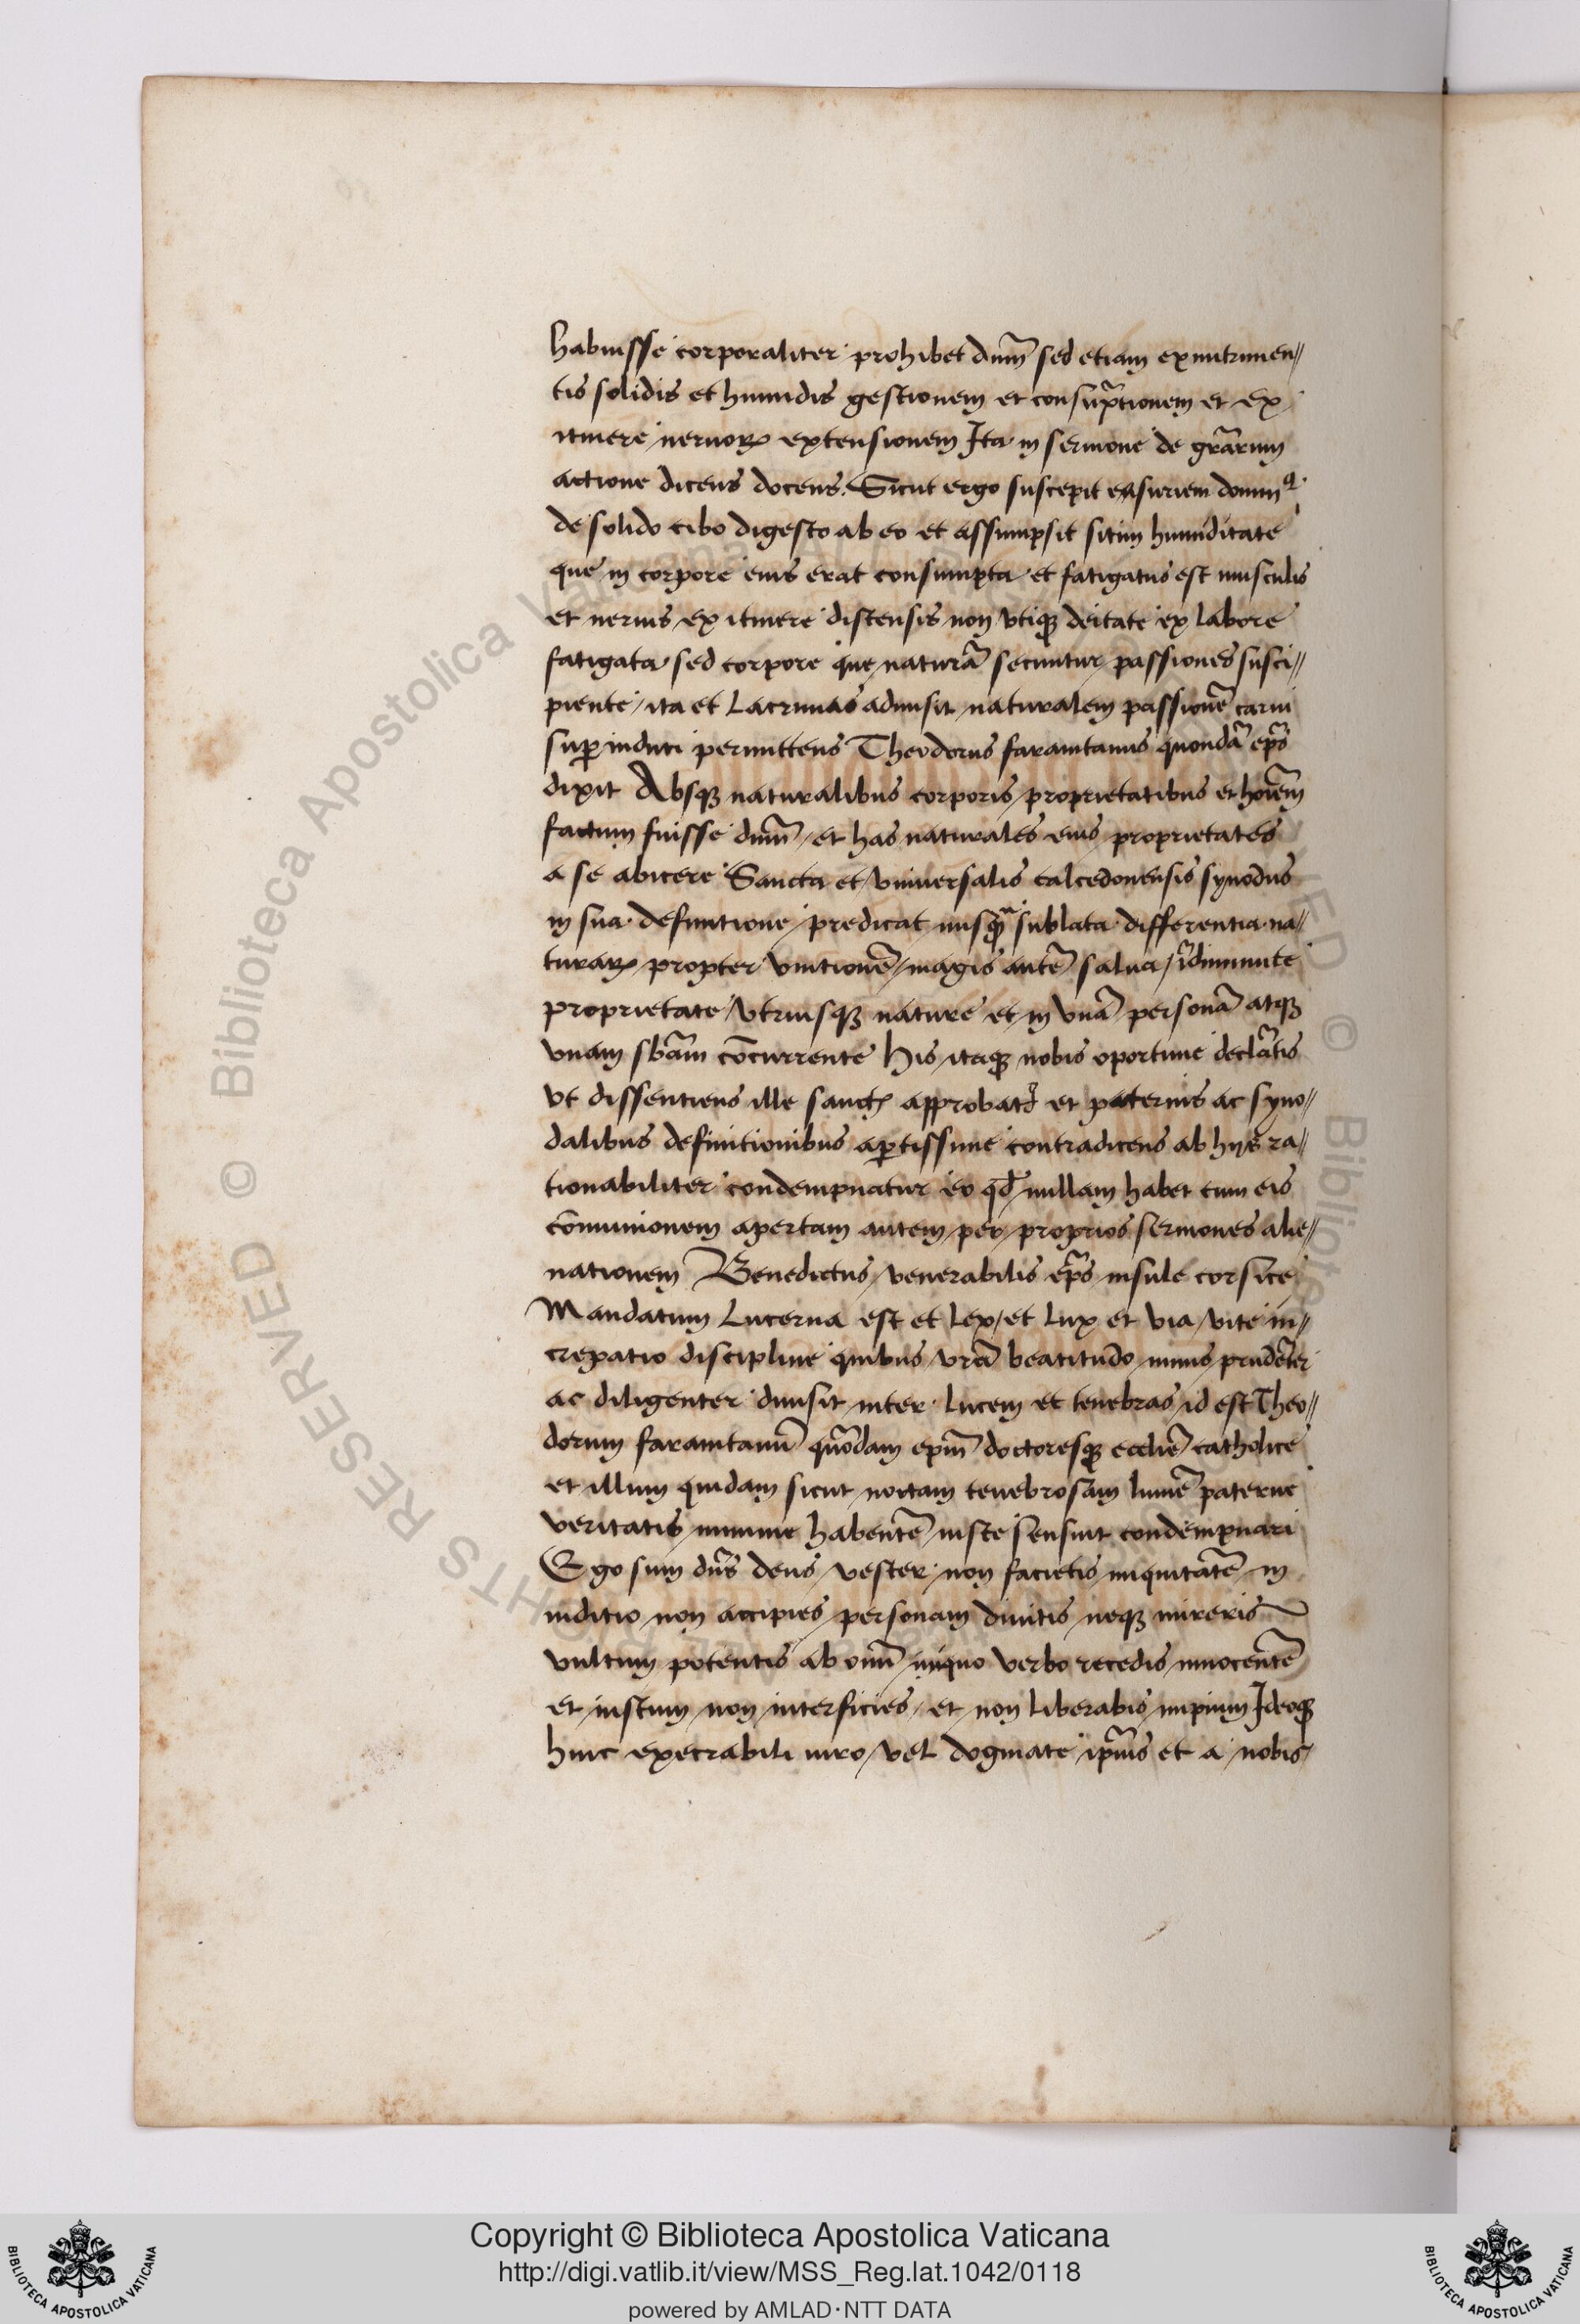 habuisse corporaliter prohibet dnm̄ sed etiam ex nutrimen//
tis solidis et humidis gestionem et consūptionem et ex
itinere neruoꝝ extensionem Ita in sermone de gr̄arum
actione dicens docens. Sicut ergo suscepit esuriem domin9
de solido cibo digesto ab eo et assumpsit sitim humiditate
que in corpore eius erat consumpta et fatigatus est musculis
et neruis ex itinere distensis non vtiqꝫ deitate ex labore
fatigata sed corpore que naturā secuntur passiones susci//
piente ita et Lacrimas admisit naturalem passionē carni
suꝑ induti permittens Theodorus faranitanus quondā ep̄s
dixit Absqꝫ naturalibus corporis proprietatibus et hoīem
factum fuisse dnm̄ et has naturales eius proprietates
a se abicere Sancta et vniuersalis calcedonensis synodus
in sua definitione predicat nusqȝ sublata differentia na//
turaꝝ propter vnitionē magis autē salua
proprietate vtriusqꝫ nature et in vnā personā atqꝫ
vnam sb̄am cōcurrente His itaqꝫ nobis oportune declāatis
vt dissentiens ille approbatr et paternis ac syno//
dalibus definitionibus aꝑtissime contradicens ab hijs ra//
tionabiliter condempnatur eo qd̄ nullam habet cum eis
cōmunionem apertam autem per proprios sermones alie//
nationem Benedictus venerabilis ep̄s insule corsice
Mandatum Lucerna est et Lex et Lux et via vite in//
crepatio discipline quibus vr̄a beatitudo nimis prudēter
ac diligenter diuisit inter lucem et tenebras id est Theo//
dorum faranitanū quōdam epm̄ doctoresqꝫ ecclīe catholice
et illum quidam sicut noctam tenebrosam lumē paterne
veritatis minime habentē iuste sensuit condempnari
Ego sum dn̄s deus vester non facietis iniquitatē in
iuditio non accipies personam diuitis neqꝫ mireris
vultum potentis ab omī iniquo verbo recedis innocentē
et iustum non interficies et non liberabis impium Ideoqꝫ
hinc execrabili uiro vel dogmate ip̄ius et a nobis
Copyright © Biblioteca Apostolica Vaticana
http://digi.vatlib.it/view/MSS_Reg.lat.1042/0118
powered by AMLAD·NTT DATA